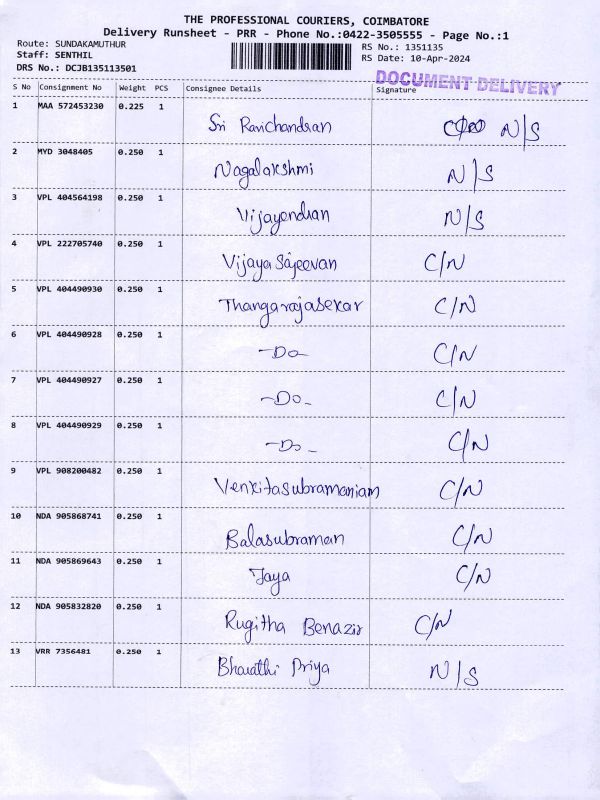 THE PROFESSIONAL COURIERS, COIMBATORE
Delivery Runsheet - PRR - Phone No.:0422-3505555 - Page No.:1
Route: SUNDAKAMUTHUR
Staff: SENTHIL
DRS No.: DCJB135113501
RS No.: 1351135
RS Date: 10-Apr-2024
DOCUMENT DELIVERY
S No Consignment No Weight PCS Consignee Details Signature
1 MAA 572453230 0.225 1 Sri Ravichandran N/S
2 MYD 3048405 0.250 1 Nagalakshmi N/S
3 VPL 404564198 0.250 1 Vijayendian N/S
4 VPL 222705740 0.250 1 Vijaya Sajeevan C/N
5 VPL 404490930 0.250 1 Thangarajasekar C/N
6 VPL 404490928 0.250 1 -Do- C/N
7 VPL 404490927 0.250 1 -Do- C/N
8 VPL 404490929 0.250 1 -Do- C/N
9 VPL 908200482 0.250 1 Venkitasubramaniam C/N
10 NDA 905868741 0.250 1 Balasubraman C/N
11 NDA 905869643 0.250 1 Jaya C/N
12 NDA 905832820 0.250 1 Rugitha Benazir C/N
13 VRR 7356481 0.250 1 Bharathi Priya N/S